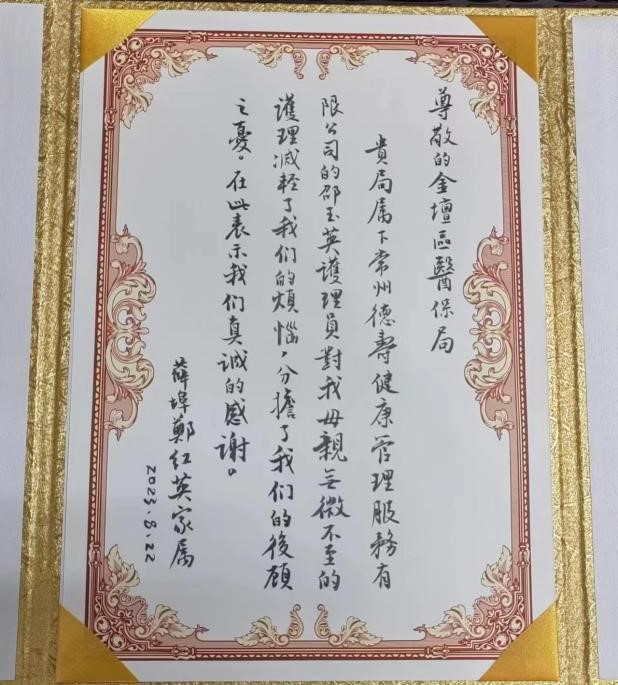 尊敬的金壇區醫保局
貴局属下常州德壽健康管理服務有
限公司的邵玉英護理員對我母親無微不至的
護理减輕了我们的煩惱，分擔了我们的後顧
之憂。在此表示我们真诚的感谢。
薛埠鄭红英家属
2023.8.22